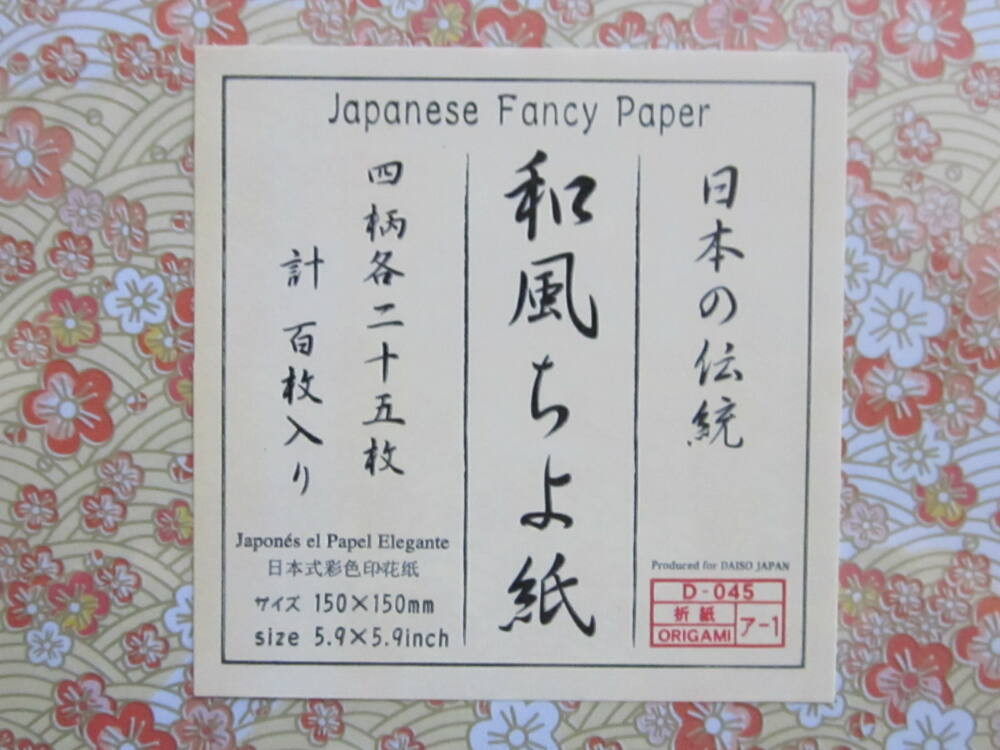 Japanese Fancy Paper
日本の伝統
和風ちよ紙
四柄各二十五枚
計 百枚入り
Japonés el Papel Elegante
日本式彩色印花紙
サイズ 150×150mm
size 5.9×5.9inch
Produced for DAISO JAPAN
D-045
折紙
ORIGAMI
ア-1